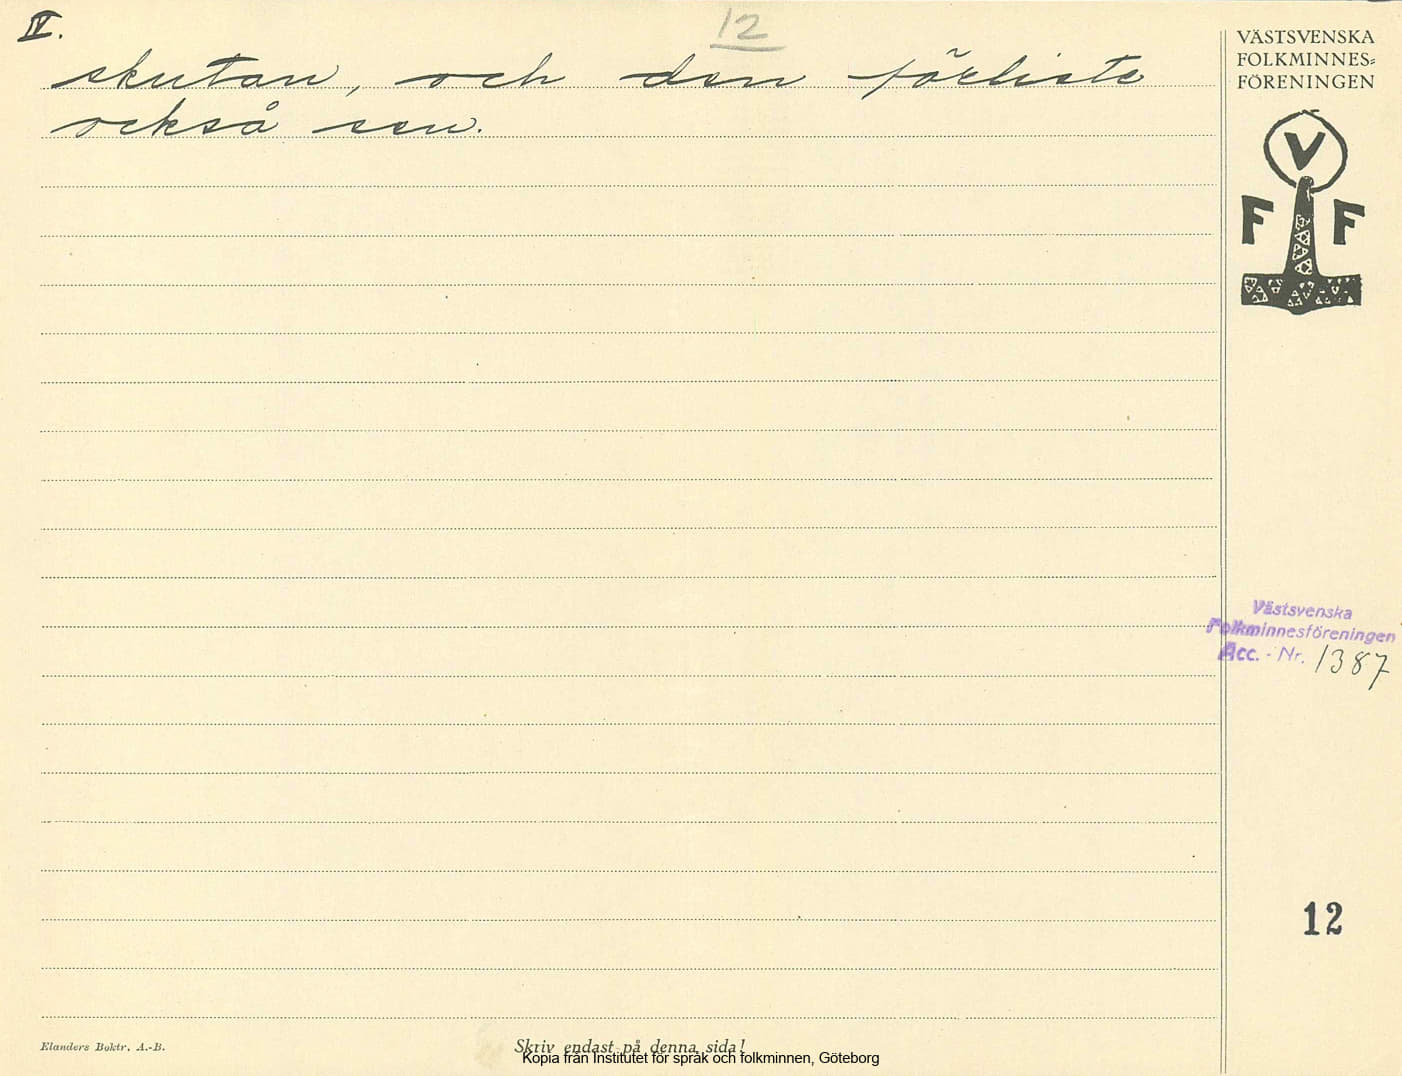 IV.
12
skutan, och den förliste
också sen.
VÄSTSVENSKA
FOLKMINNES=
FÖRENINGEN
V
F F
Västsvenska
Folkminnesföreningen
Acc. - Nr. 1387
12
Elanders Boktr. A.-B.
Skriv endast på denna sida!
Kopia från Institutet för språk och folkminnen, Göteborg